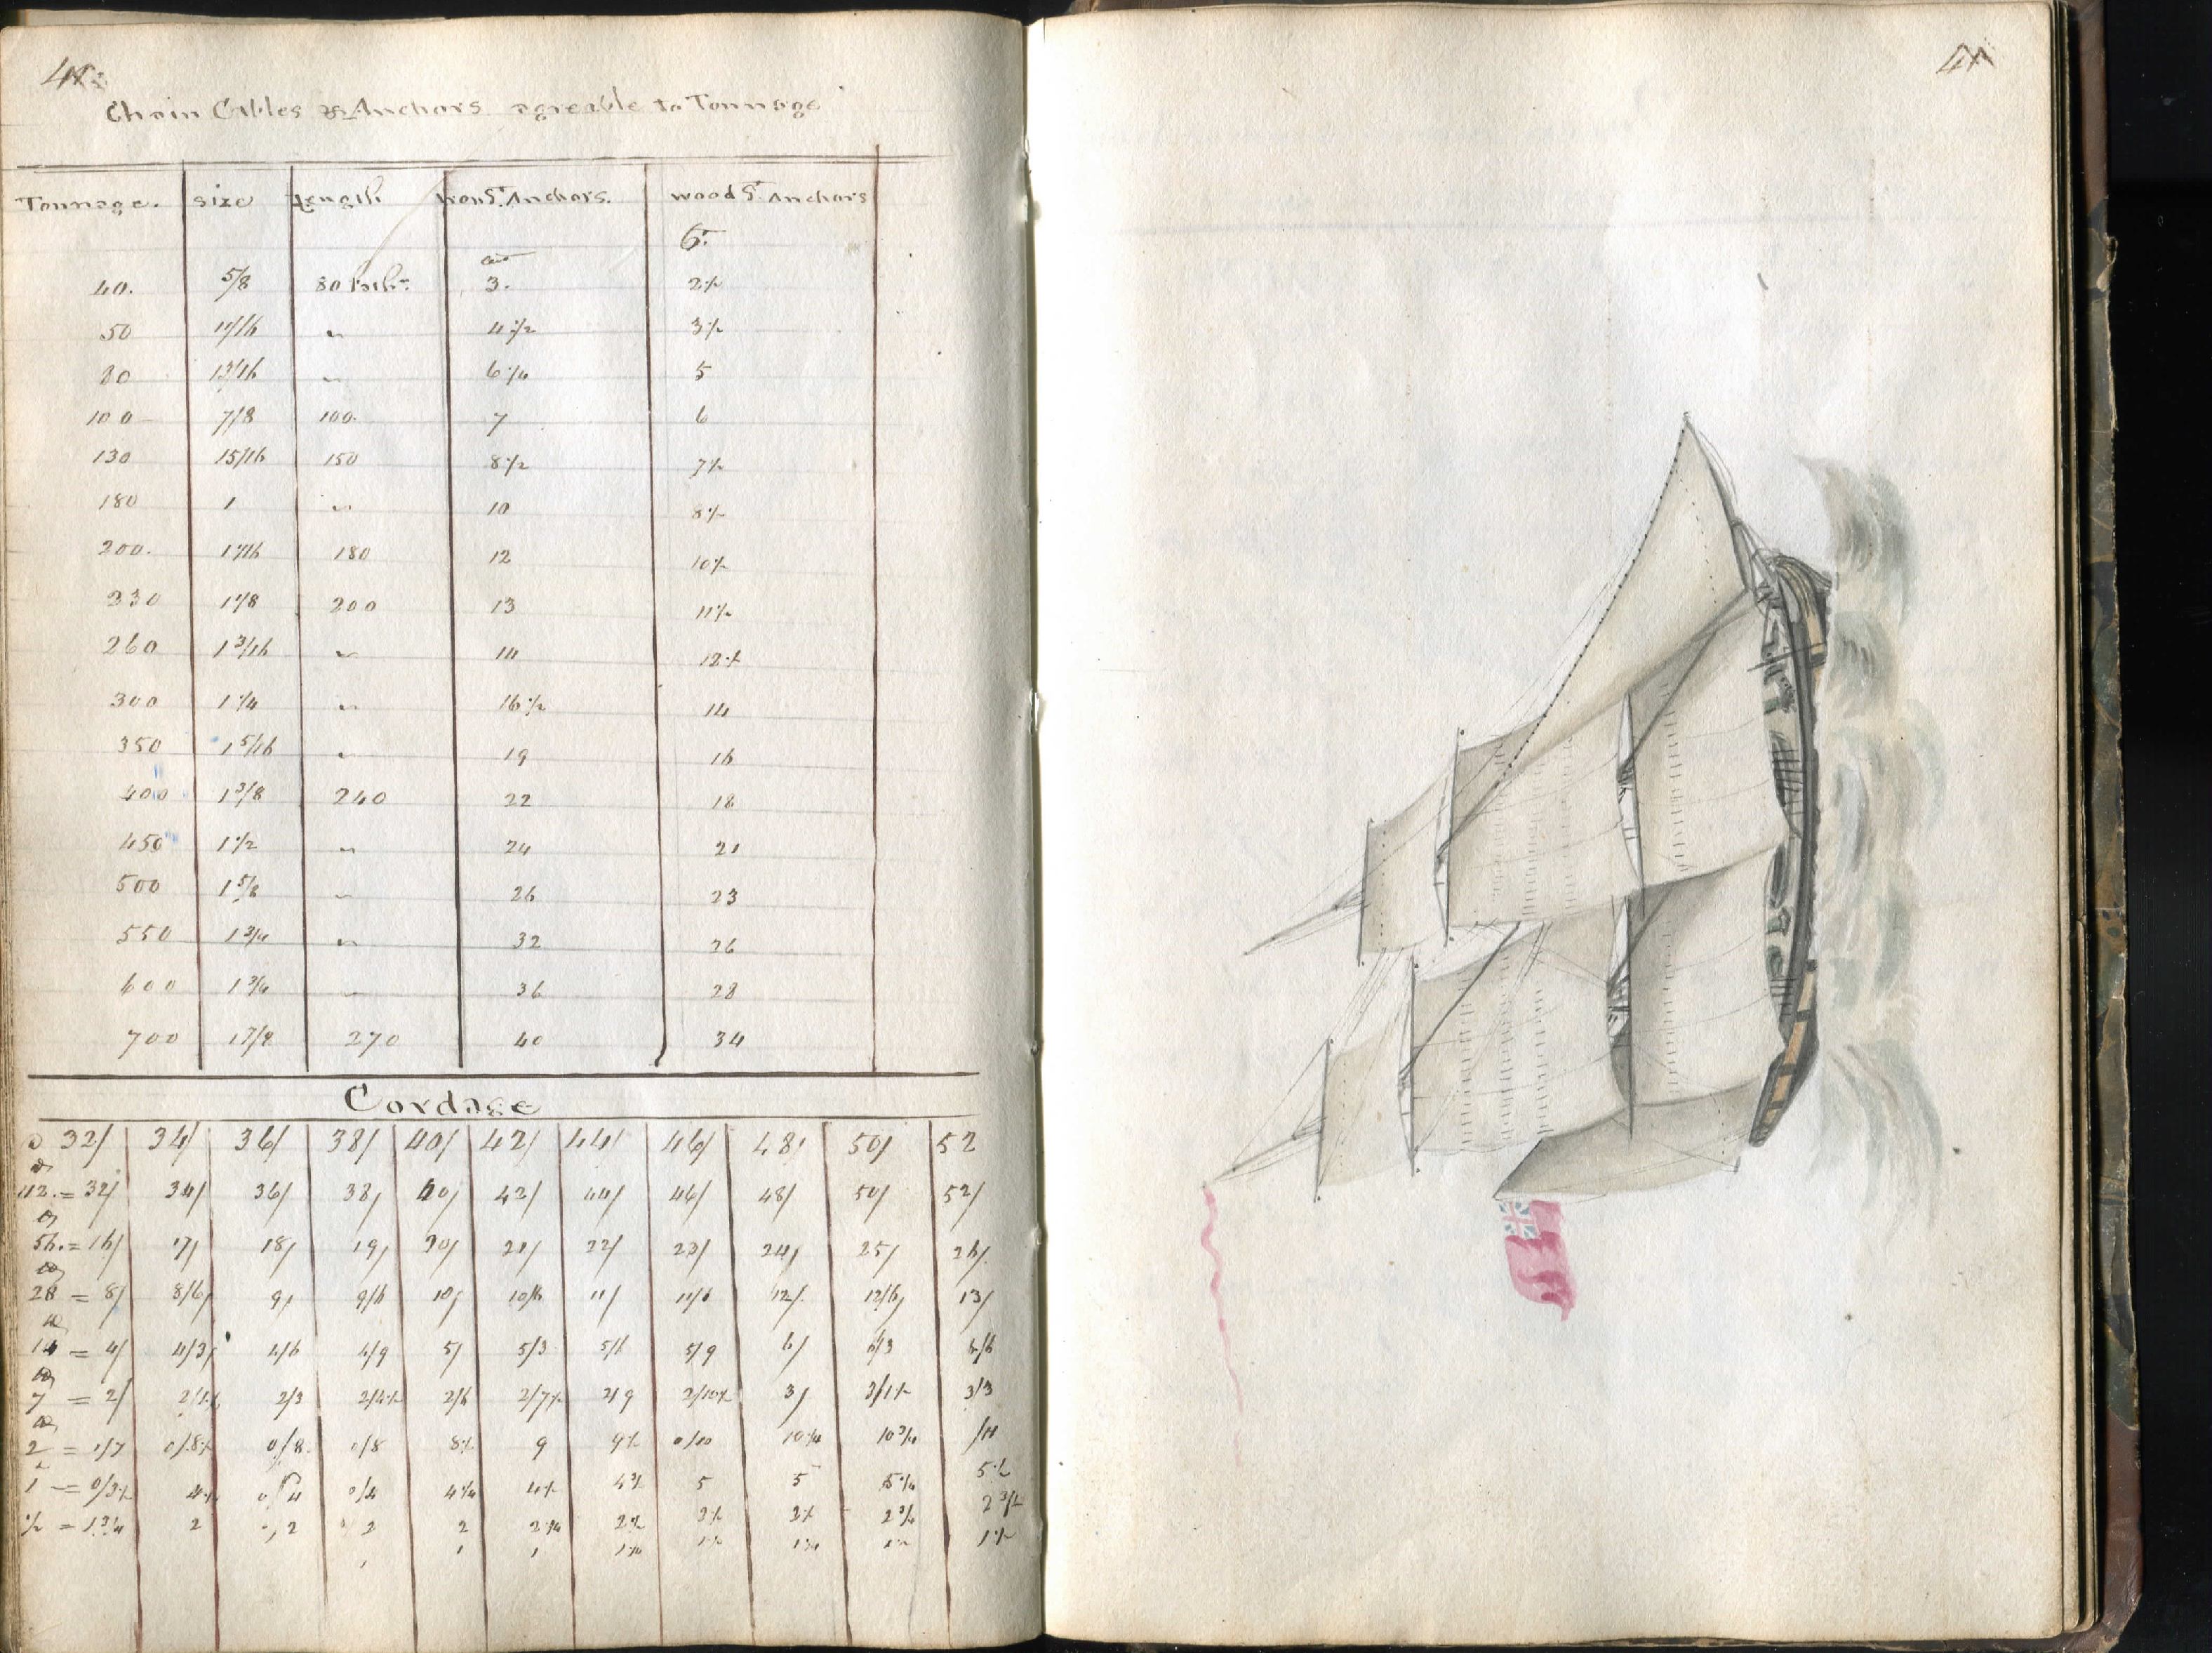 Chain Cables & Anchors agreable to Tonnage
Tonnage. size Length Iron St. Anchors. wood St. Anchors
40. 5/8 80 fath: 3. 2 1/2
50 11/16 " 4 1/2 3 1/2
80 13/16 " 6 1/4 5
100 7/8 100 7 6
130 15/16 150 8 1/2 7 1/2
180 1 " 10 8 1/2
200. 1 1/16 180 12 10 1/2
230 1 1/8 200 13 11 1/2
260 1 3/16 " 14 12 1/2
300 1 1/4 " 16 1/2 14
350 1 5/16 " 19 16
400 1 3/8 240 22 18
450 1 1/2 " 24 21
500 1 5/8 " 26 23
550 1 3/4 " 32 26
600 1 3/4 " 36 28
700 1 7/8 270 40 34
Cordage
32/ 34/ 36/ 38/ 40/ 42/ 44/ 46/ 48/ 50/ 52
112. = 32/ 34/ 36/ 38/ 40/ 42/ 44/ 46/ 48/ 50/ 52/
56. = 16/ 17/ 18/ 19/ 20/ 21/ 22/ 23/ 24/ 25/ 26/
28 = 8/ 8/6 9/ 9/6 10/ 10/6 11/ 11/6 12/ 12/6 13/
14 = 4/ 4/3 4/6 4/9 5/ 5/3 5/6 5/9 6/ 6/3 6/6
7 = 2/ 2/1 1/2 2/3 2/4 1/2 2/6 2/7 1/2 2/9 2/10 1/2 3/ 3/1 1/2 3/3
2 = 0/7 0/8 1/2 0/8 0/8 8 1/2 9 9 1/2 0/10 10 1/4 10 3/4 /11
1 = 0/3 1/2 4 1/4 0/4 0/4 4 1/4 4 1/2 4 3/4 5 5 5 1/4 5 1/2
1/2 = 1 3/4 2 2 2 2 2 1/4 2 1/2 2 1/2 2 1/2 2 3/4 2 3/4
1 1 1 1 1/4 1 1/4 1 1/2